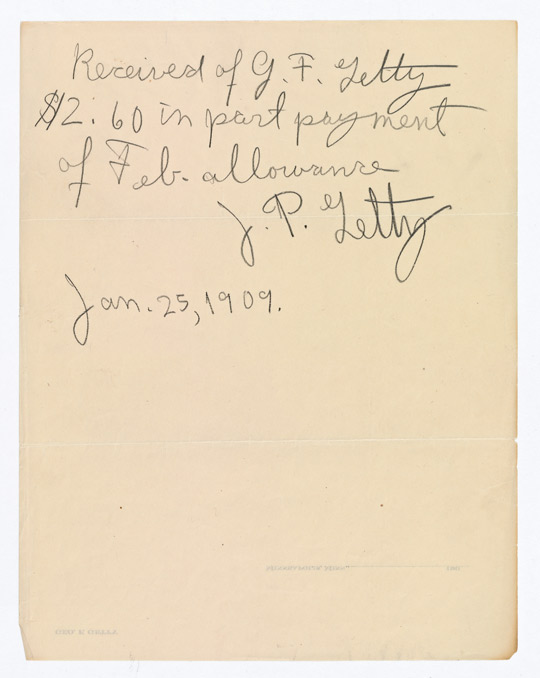 Received of G. F. Getty
$2.60 in part payment
of Feb. allowance
J. P. Getty
Jan. 25, 1909.